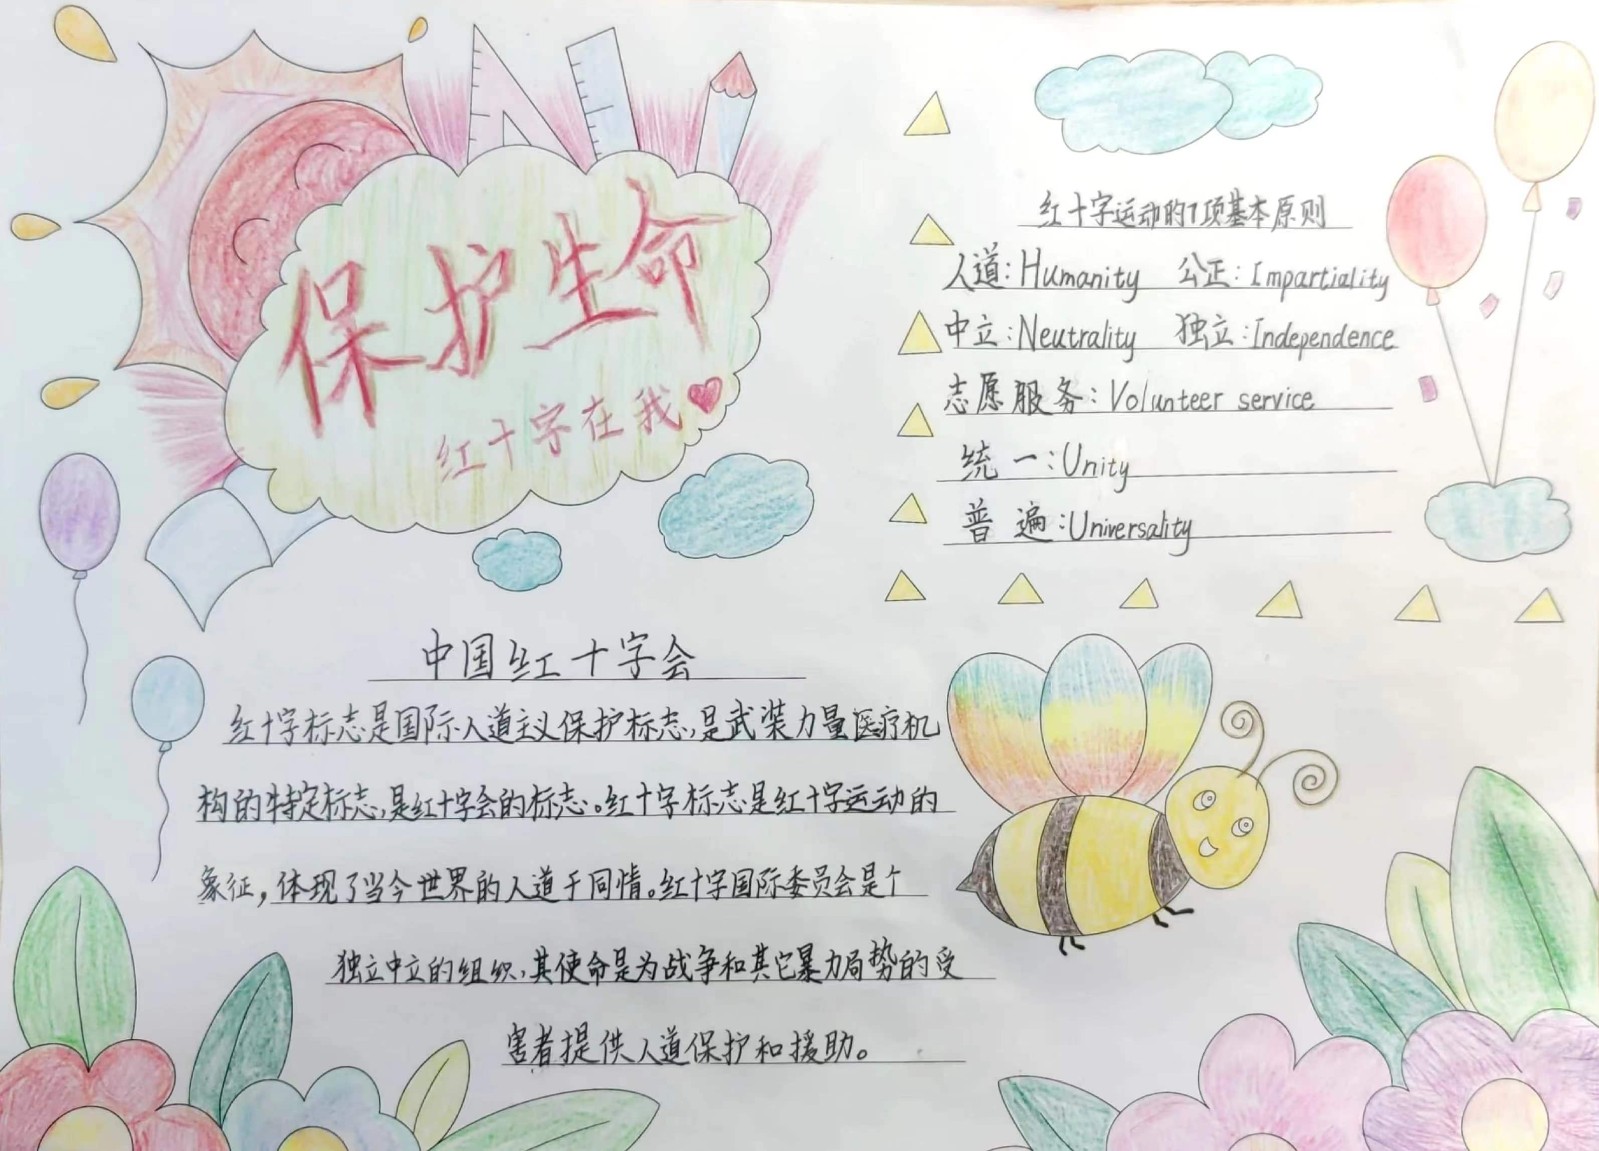 保护生命
红十字在我
红十字运动的7项基本原则
人道:Humanity 公正:Impartiality
中立:Neutrality 独立:Independence
志愿服务:Volunteer service
统一:Unity
普遍:Universality
中国红十字会
红十字标志是国际人道主义保护标志,是武装力量医疗机
构的特定标志,是红十字会的标志。红十字标志是红十字运动的
象征,体现了当今世界的人道于同情。红十字国际委员会是个
独立中立的组织,其使命是为战争和其它暴力局势的受
害者提供人道保护和援助。